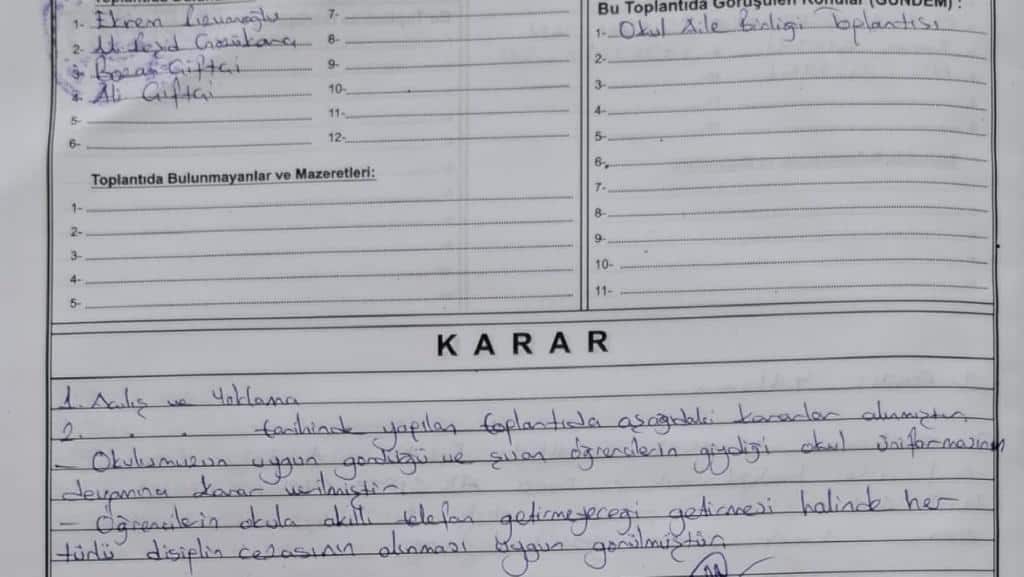 Bu Toplantıda Görüşülen Konular (GÜNDEM) :
1- Ekrem
2- Ali
3- Boran Çiftçi
4- Ali Çiftçi
5-
6-
7-
8-
9-
10-
11-
12-
1- Okul Aile Birliği Toplantısı
2-
3-
4-
5-
6-
7-
8-
9-
10-
11-
Toplantıda Bulunmayanlar ve Mazeretleri:
1-
2-
3-
4-
5-
KARAR
1. Açılış ve Yoklama
2. . . tarihinde yapılan toplantıda aşağıdaki kararlar alınmıştır.
- Okulumuzun uygun gördüğü ve şuan öğrencilerin giydiği okul üniformasının
devamına karar verilmiştir.
- Öğrencilerin okula akıllı telefon getirmeyeceği getirmesi halinde her
türlü disiplin cezasının alınması uygun görülmüştür.